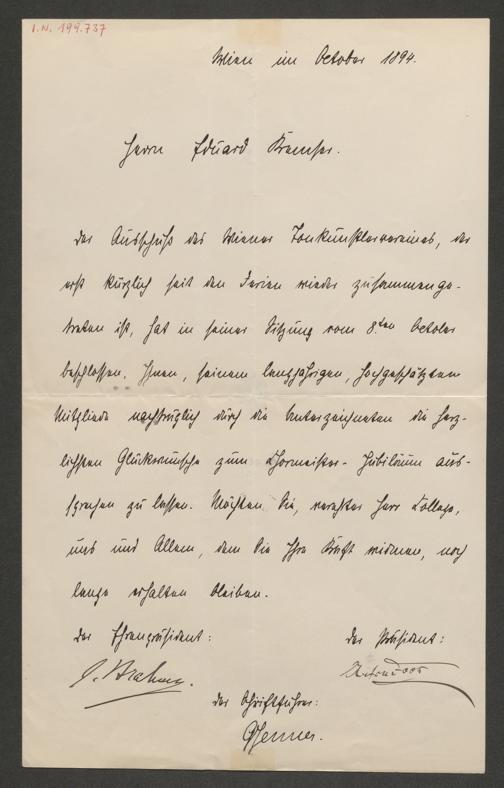 I.N. 199.737
Wien im October 1894.
Herrn Eduard Kremser.
Der Ausschuß des Wiener Tonkünstlervereines, der
erst kürzlich seit den Ferien wieder zusammenge-
treten ist, hat in seiner Sitzung vom 8.ten October
beschlossen, Ihnen, seinem langjährigen, hochgeschätzten
Mitgliede nachträglich durch die Unterzeichneten die herz-
lichsten Glückwünsche zum Chormeister-Jubiläum aus-
sprechen zu lassen. Möchten Sie, verehrter Herr College,
uns und Allem, dem Sie Ihre Kraft widmen, noch
lange erhalten bleiben.
Der Ehrenpräsident:
Der Präsident:
J. Brahms.
Ant. Door
Der Schriftführer:
GJenner.